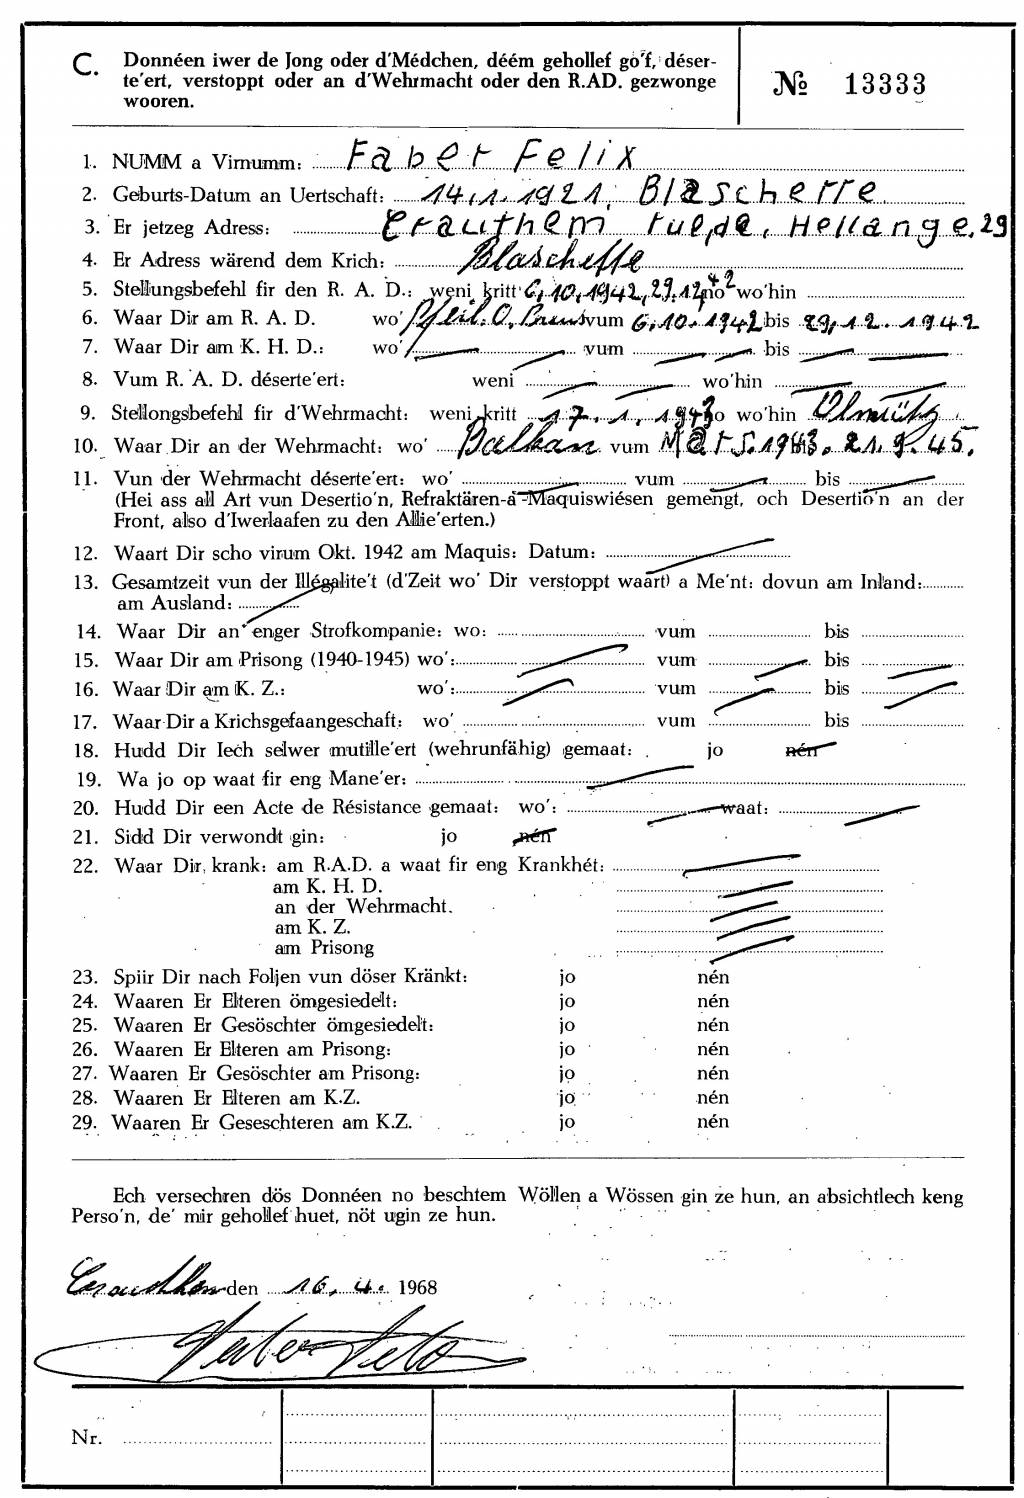 C. Donnéen iwer de Jong oder d'Médchen, déém gehollef go'f, déser-
te'ert, verstoppt oder an d'Wehrmacht oder den R.AD. gezwonge
wooren.
№ 13333
1. NUMM a Virnumm: Faber Felix
2. Geburts-Datum an Uertschaft: 14.1.1921. Blascherre
3. Er jetzeg Adress: Crauthem rue de Hellange. 29
4. Er Adress wärend dem Krich: Blascheffe
5. Stellungsbefehl fir den R. A. D.: weni kritt 6.10.1942, 29.12.42 no wo'hin
6. Waar Dir am R. A. D. wo' Pfeil. O. vum 6.10.1942 bis 29.12.1942
7. Waar Dir am K. H. D.: wo' vum bis
8. Vum R. A. D. déserte'ert: weni wo'hin
9. Stellongsbefehl fir d'Wehrmacht: weni kritt 17.1.1943 no wo'hin Olmütz
10. Waar Dir an der Wehrmacht: wo' Balkan vum Mars.1943. bis 21.9.45.
11. Vun der Wehrmacht déserte'ert: wo' vum bis
(Hei ass all Art vun Desertio'n, Refraktären-a-Maquiswiésen gemengt, och Desertio'n an der
Front, also d'Iwerlaafen zu den Allie'erten.)
12. Waart Dir scho virum Okt. 1942 am Maquis: Datum:
13. Gesamtzeit vun der Illégalite't (d'Zeit wo' Dir verstoppt waart) a Me'nt: dovun am Inland:
am Ausland:
14. Waar Dir an enger Strofkompanie: wo: vum bis
15. Waar Dir am Prisong (1940-1945) wo': vum bis
16. Waar Dir am K. Z.: wo': vum bis
17. Waar Dir a Krichsgefaangeschaft: wo' vum bis
18. Hudd Dir Iech selwer mutille'ert (wehrunfähig) gemaat: jo nén
19. Wa jo op waat fir eng Mane'er:
20. Hudd Dir een Acte de Résistance gemaat: wo': waat:
21. Sidd Dir verwondt gin: jo nén
22. Waar Dir krank: am R.A.D. a waat fir eng Krankhét:
am K. H. D.
an der Wehrmacht.
am K. Z.
am Prisong
23. Spiir Dir nach Foljen vun döser Kränkt: jo nén
24. Waaren Er Elteren ömgesiedelt: jo nén
25. Waaren Er Gesöschter ömgesiedelt: jo nén
26. Waaren Er Elteren am Prisong: jo nén
27. Waaren Er Gesöschter am Prisong: jo nén
28. Waaren Er Elteren am K.Z. jo nén
29. Waaren Er Geseschteren am K.Z. jo nén
Ech versechren dös Donnéen no beschtem Wöllen a Wössen gin ze hun, an absichtlech keng
Perso'n, de' mir gehollef huet, nöt ugin ze hun.
Crauthem den 16.4. 1968
Nr.